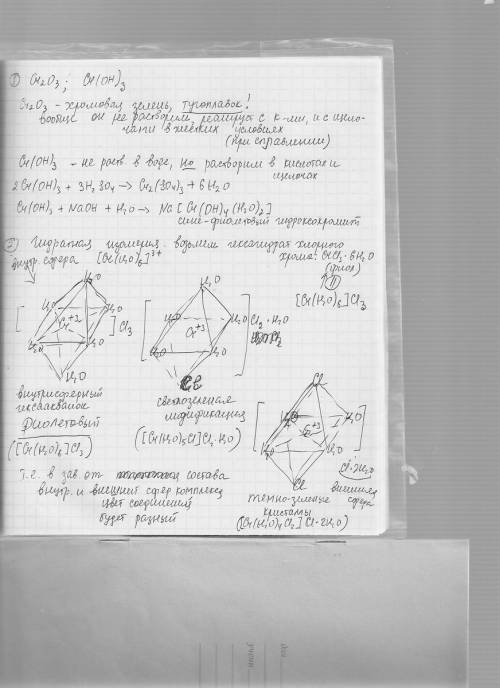 ① Cr2O3; Cr(OH)3
Cr2O3 - хромовая зелень, тугоплавок!
вообще он не растворим, реагирует с к-ми, и с щело-
чами в жёстких условиях
(при сплавлении)
Cr(OH)3 - не раств в воде, но растворим в кислотах и
щелочах
2Cr(OH)3 + 3H2SO4 → Cr2(SO4)3 + 6H2O
Cr(OH)3 + NaOH + H2O → Na[Cr(OH)4(H2O)2]
сине-фиолетовый гидроксохромит
② Гидратная изомерия. возьмем гексагидрат хлорного
хрома: CrCl3·6H2O
внутр. сфера [Cr(H2O)6]3+
(фиол)
[Cr(H2O)6]Cl3
H2O
H2O H2O
Cr+3
H2O H2O
H2O
]Cl3
H2O
H2O H2O
Cr+3
H2O H2O
Cl
Cl2·H2O
внутрисферный
гексаакваион
Фиолетовый
([Cr(H2O)6]Cl3)
светлозеленая
модификация
([Cr(H2O)5Cl]Cl2·H2O)
Cl
H2O H2O
Cr+3
H2O H2O
Cl
Cl·2H2O
внешняя
сфера
т.е. в зав. от состава
внутр. и внешней сфер комплекса
цвет соединений
будет разный
темно-зеленые
кристаллы
([Cr(H2O)4Cl2]Cl·2H2O)